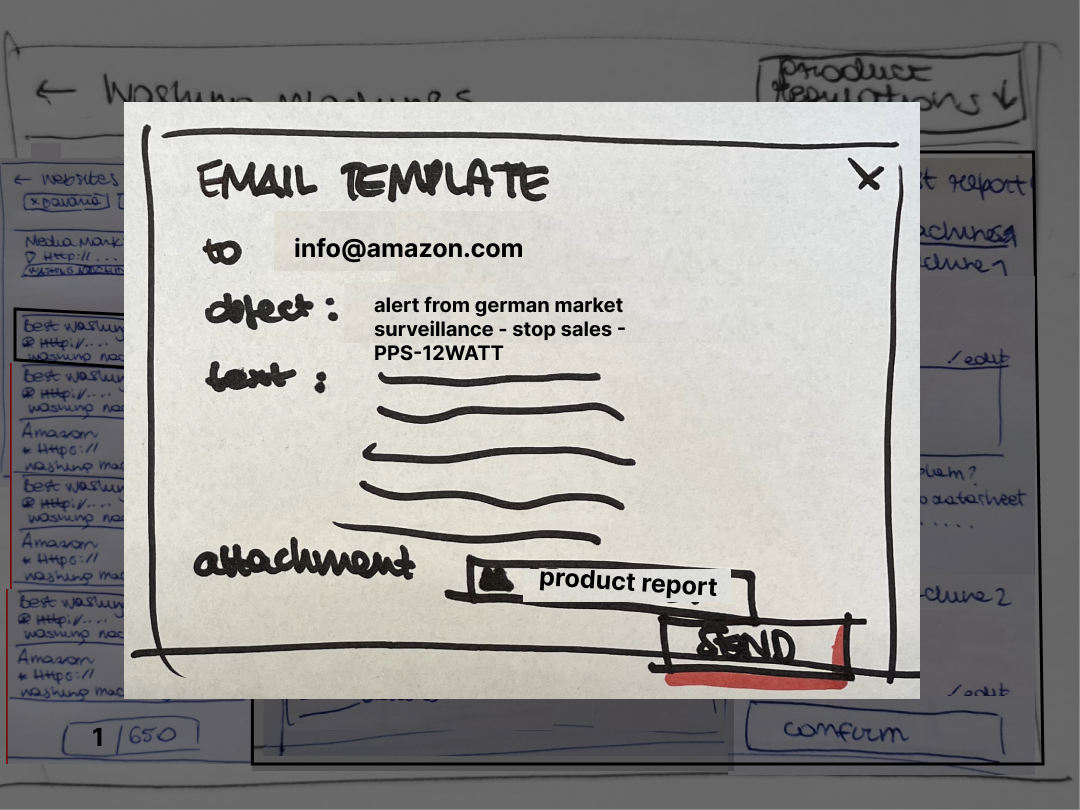 ← Washing Machines
Product
Regulations ↓
← websites
Media Mark
Http://....
Best Washin
Http://....
washing mac
Best Washin
Http://....
washing mac
Amazon
Https://
washing mac
Best Washin
Http://....
washing mac
Amazon
Https://
washing mac
Best Washin
Http://....
washing mac
Amazon
Https://
washing mac
1 /650
EMAIL TEMPLATE X
to info@amazon.com
object: alert from german market
surveillance - stop sales -
PPS-12WATT
text:
attachment product report
SEND
t report
/edit
datasheet
.....
/edit
confirm